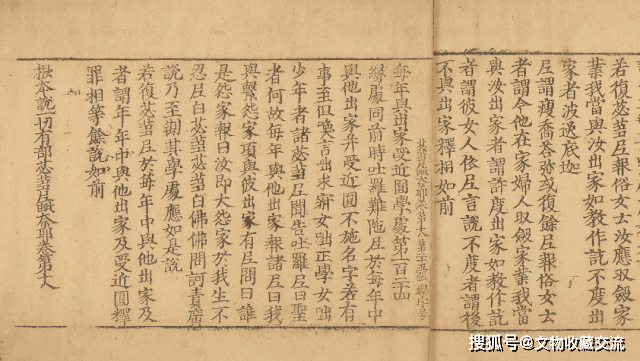 若復苾芻尼報俗女云汝應収斂家
業我當與汝出家如教作訖不度出
家者波逸底迦
尼謂瘦喬答弥或復餘尼報俗女云
者謂令他在家婦人収斂家業我當
與汝出家者謂許度出家如教作訖
者謂彼女人依尼言說不度者謂後
不與出家釋相如前
每年與出家受近圓學處第一百二十四
緣處同前時吐羅難陁尼於每年中
與他出家并受近圓不施名字若有
事至但喚言出求寂女出正學女出
少年者諸苾芻尼聞告吐羅尼曰聖
者何故每年與他出家報諸尼曰我
與報怨家項與彼出家有尼問曰誰
是怨家報曰汝即大怨家於我生不
忍尼白苾芻苾芻白佛佛問訶責廣
說乃至制其學處應如是說
若復苾芻尼於每年中與他出家及
者謂年年中與他出家及受近圓釋
罪相等餘說如前
根本說一切有部苾芻尼毗奈耶卷第十八
搜狐号@文物收藏交流